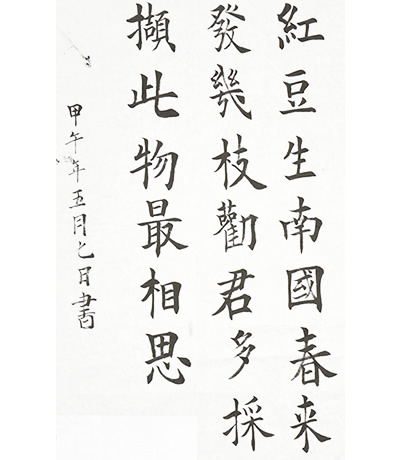 紅豆生南國春来
發幾枝勸君多採
擷此物最相思
甲午年五月七日書